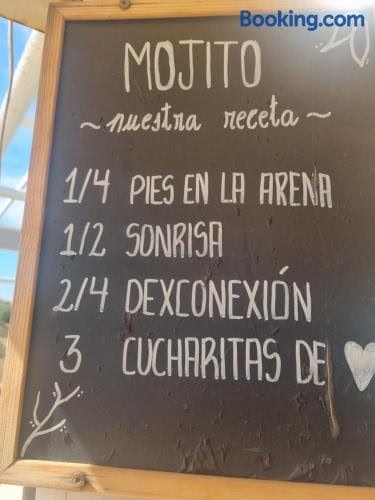 Booking.com
MOJITO
~nuestra receta~
1/4 PIES EN LA ARENA
1/2 SONRISA
2/4 DEXCONEXIÓN
3 CUCHARITAS DE